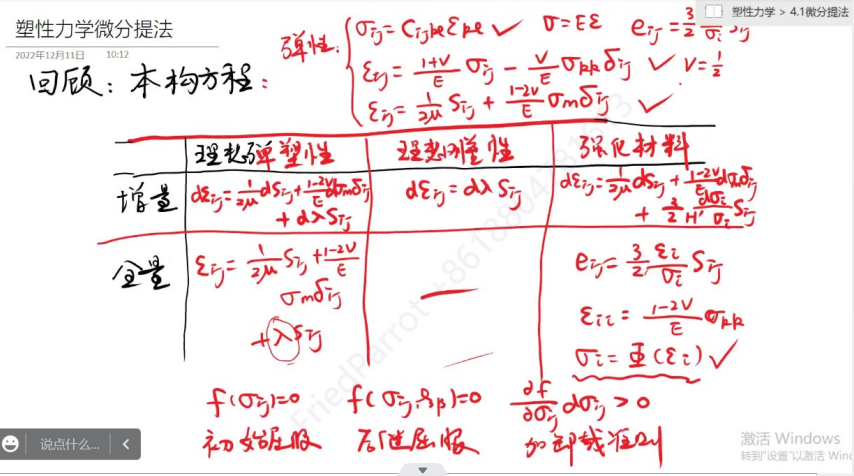 塑性力学 > 4.1微分提法
塑性力学微分提法
2022年12月11日 10:12
回顾：本构方程：
弹性：
σij = Cijkl εkl ✓ σ=Eε eij = 3/2 εi/σi Sij
εij = (1+ν)/E σij − ν/E σkk δij ✓ ν=1/2
εij = 1/2μ Sij + (1-2ν)/E σm δij ✓
理想弹塑性 理想刚塑性 强化材料
增量 dεij = 1/2μ dSij + (1-2ν)/E dσm δij + dλ Sij
dεij = dλ Sij
dεij = 1/2μ dSij + (1-2ν)/E dσm δij + 3/2 dσi/(H' σi) Sij
全量 εij = 1/2μ Sij + (1-2ν)/E σm δij + λ Sij
—
eij = 3/2 εi/σi Sij
εii = (1-2ν)/E σkk
σi = Φ(εi) ✓
f(σij)=0 f(σij, ξβ)=0 ∂f/∂σij dσij > 0
初始屈服 后继屈服 加卸载准则
FriedParrot
说点什么...
激活 Windows
转到"设置"以激活 Wind